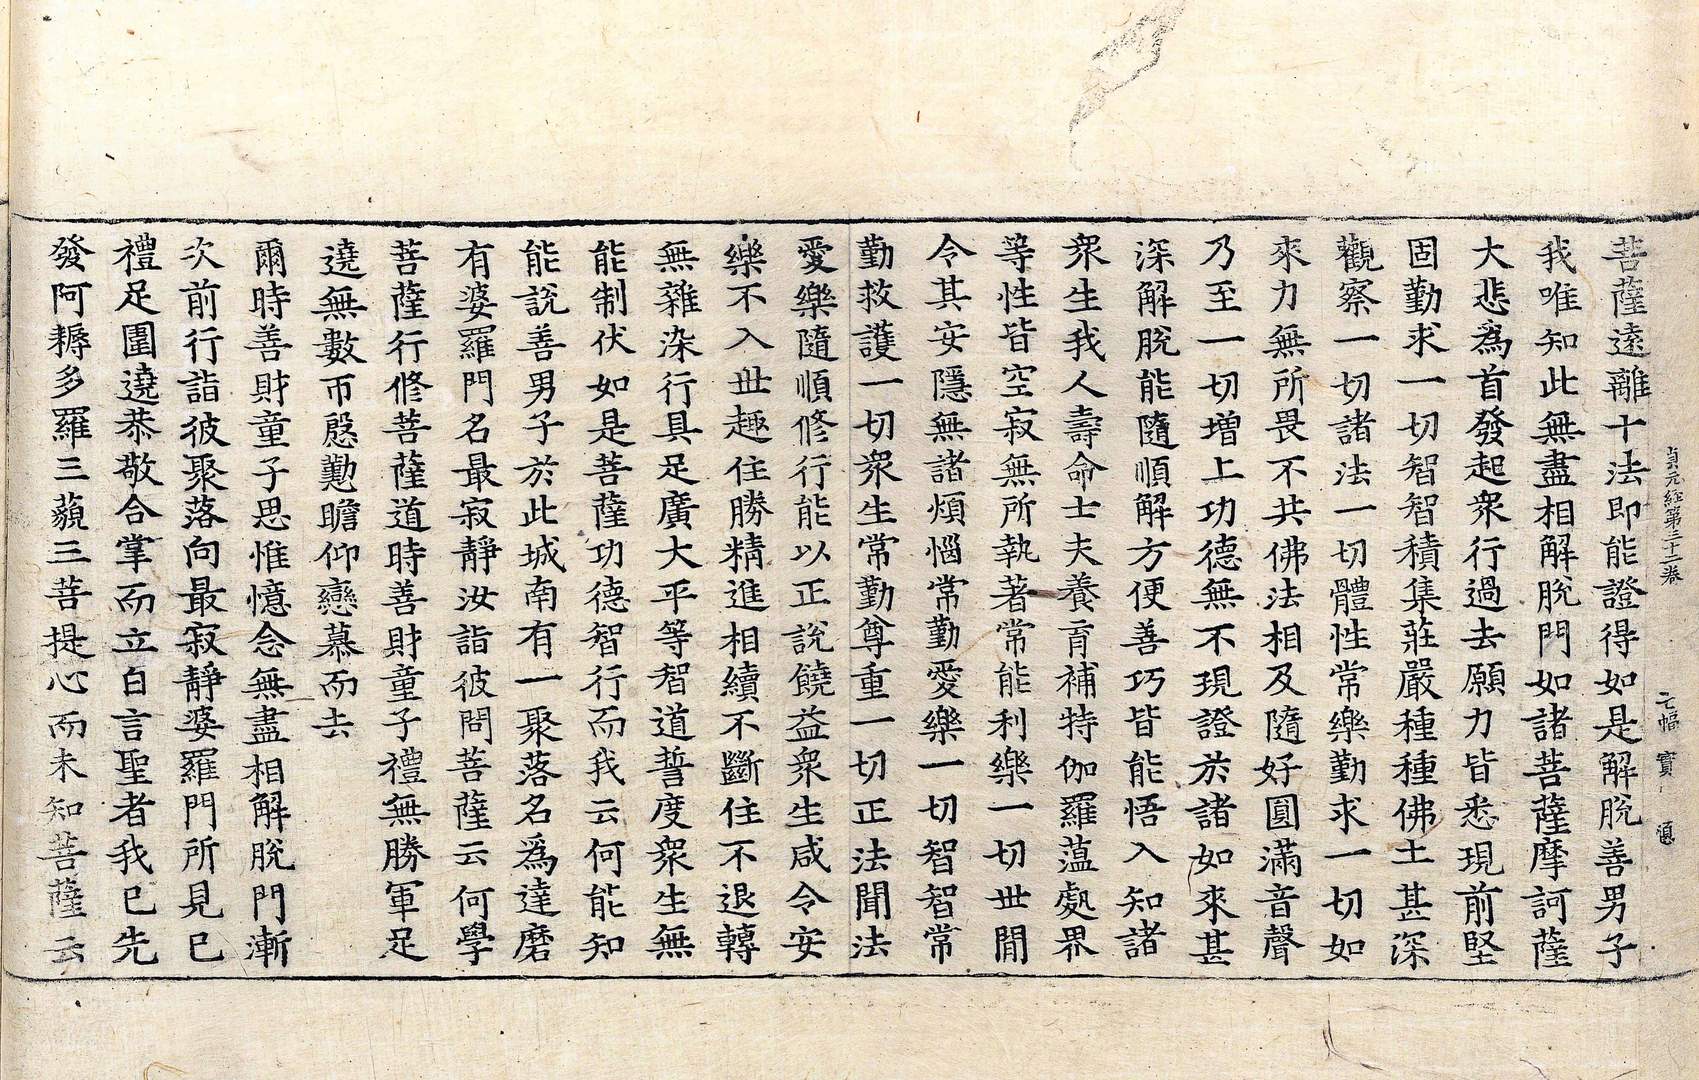 菩薩遠離十法即能證得如是解脫善男子
我唯知此無盡相解脫門如諸菩薩摩訶薩
大悲爲首發起衆行過去願力皆悉現前堅
固勤求一切智智積集莊嚴種種佛土甚深
觀察一切諸法一切體性常樂勤求一切如
來力無所畏不共佛法相及隨好圓滿音聲
乃至一切增上功德無不現證於諸如來甚
深解脫能隨順解方便善巧皆能悟入知諸
衆生我人壽命士夫養育補特伽羅蘊處界
等性皆空寂無所執著常能利樂一切世間
令其安隱無諸煩惱常勤愛樂一切智智常
勤救護一切衆生常勤尊重一切正法聞法
愛樂隨順修行能以正說饒益衆生咸令安
樂不入世趣住勝精進相續不斷住不退轉
無雜染行具足廣大平等智道誓度衆生無
能制伏如是菩薩功德智行而我云何能知
能說善男子於此城南有一聚落名爲達磨
有婆羅門名最寂靜汝詣彼問菩薩云何學
菩薩行修菩薩道時善財童子禮無勝軍足
遶無數帀慇懃瞻仰戀慕而去
爾時善財童子思惟憶念無盡相解脫門漸
次前行詣彼聚落向最寂靜婆羅門所見已
禮足圍遶恭敬合掌而立白言聖者我已先
發阿耨多羅三藐三菩提心而未知菩薩云
貞元經第三十二卷 七幅 寶